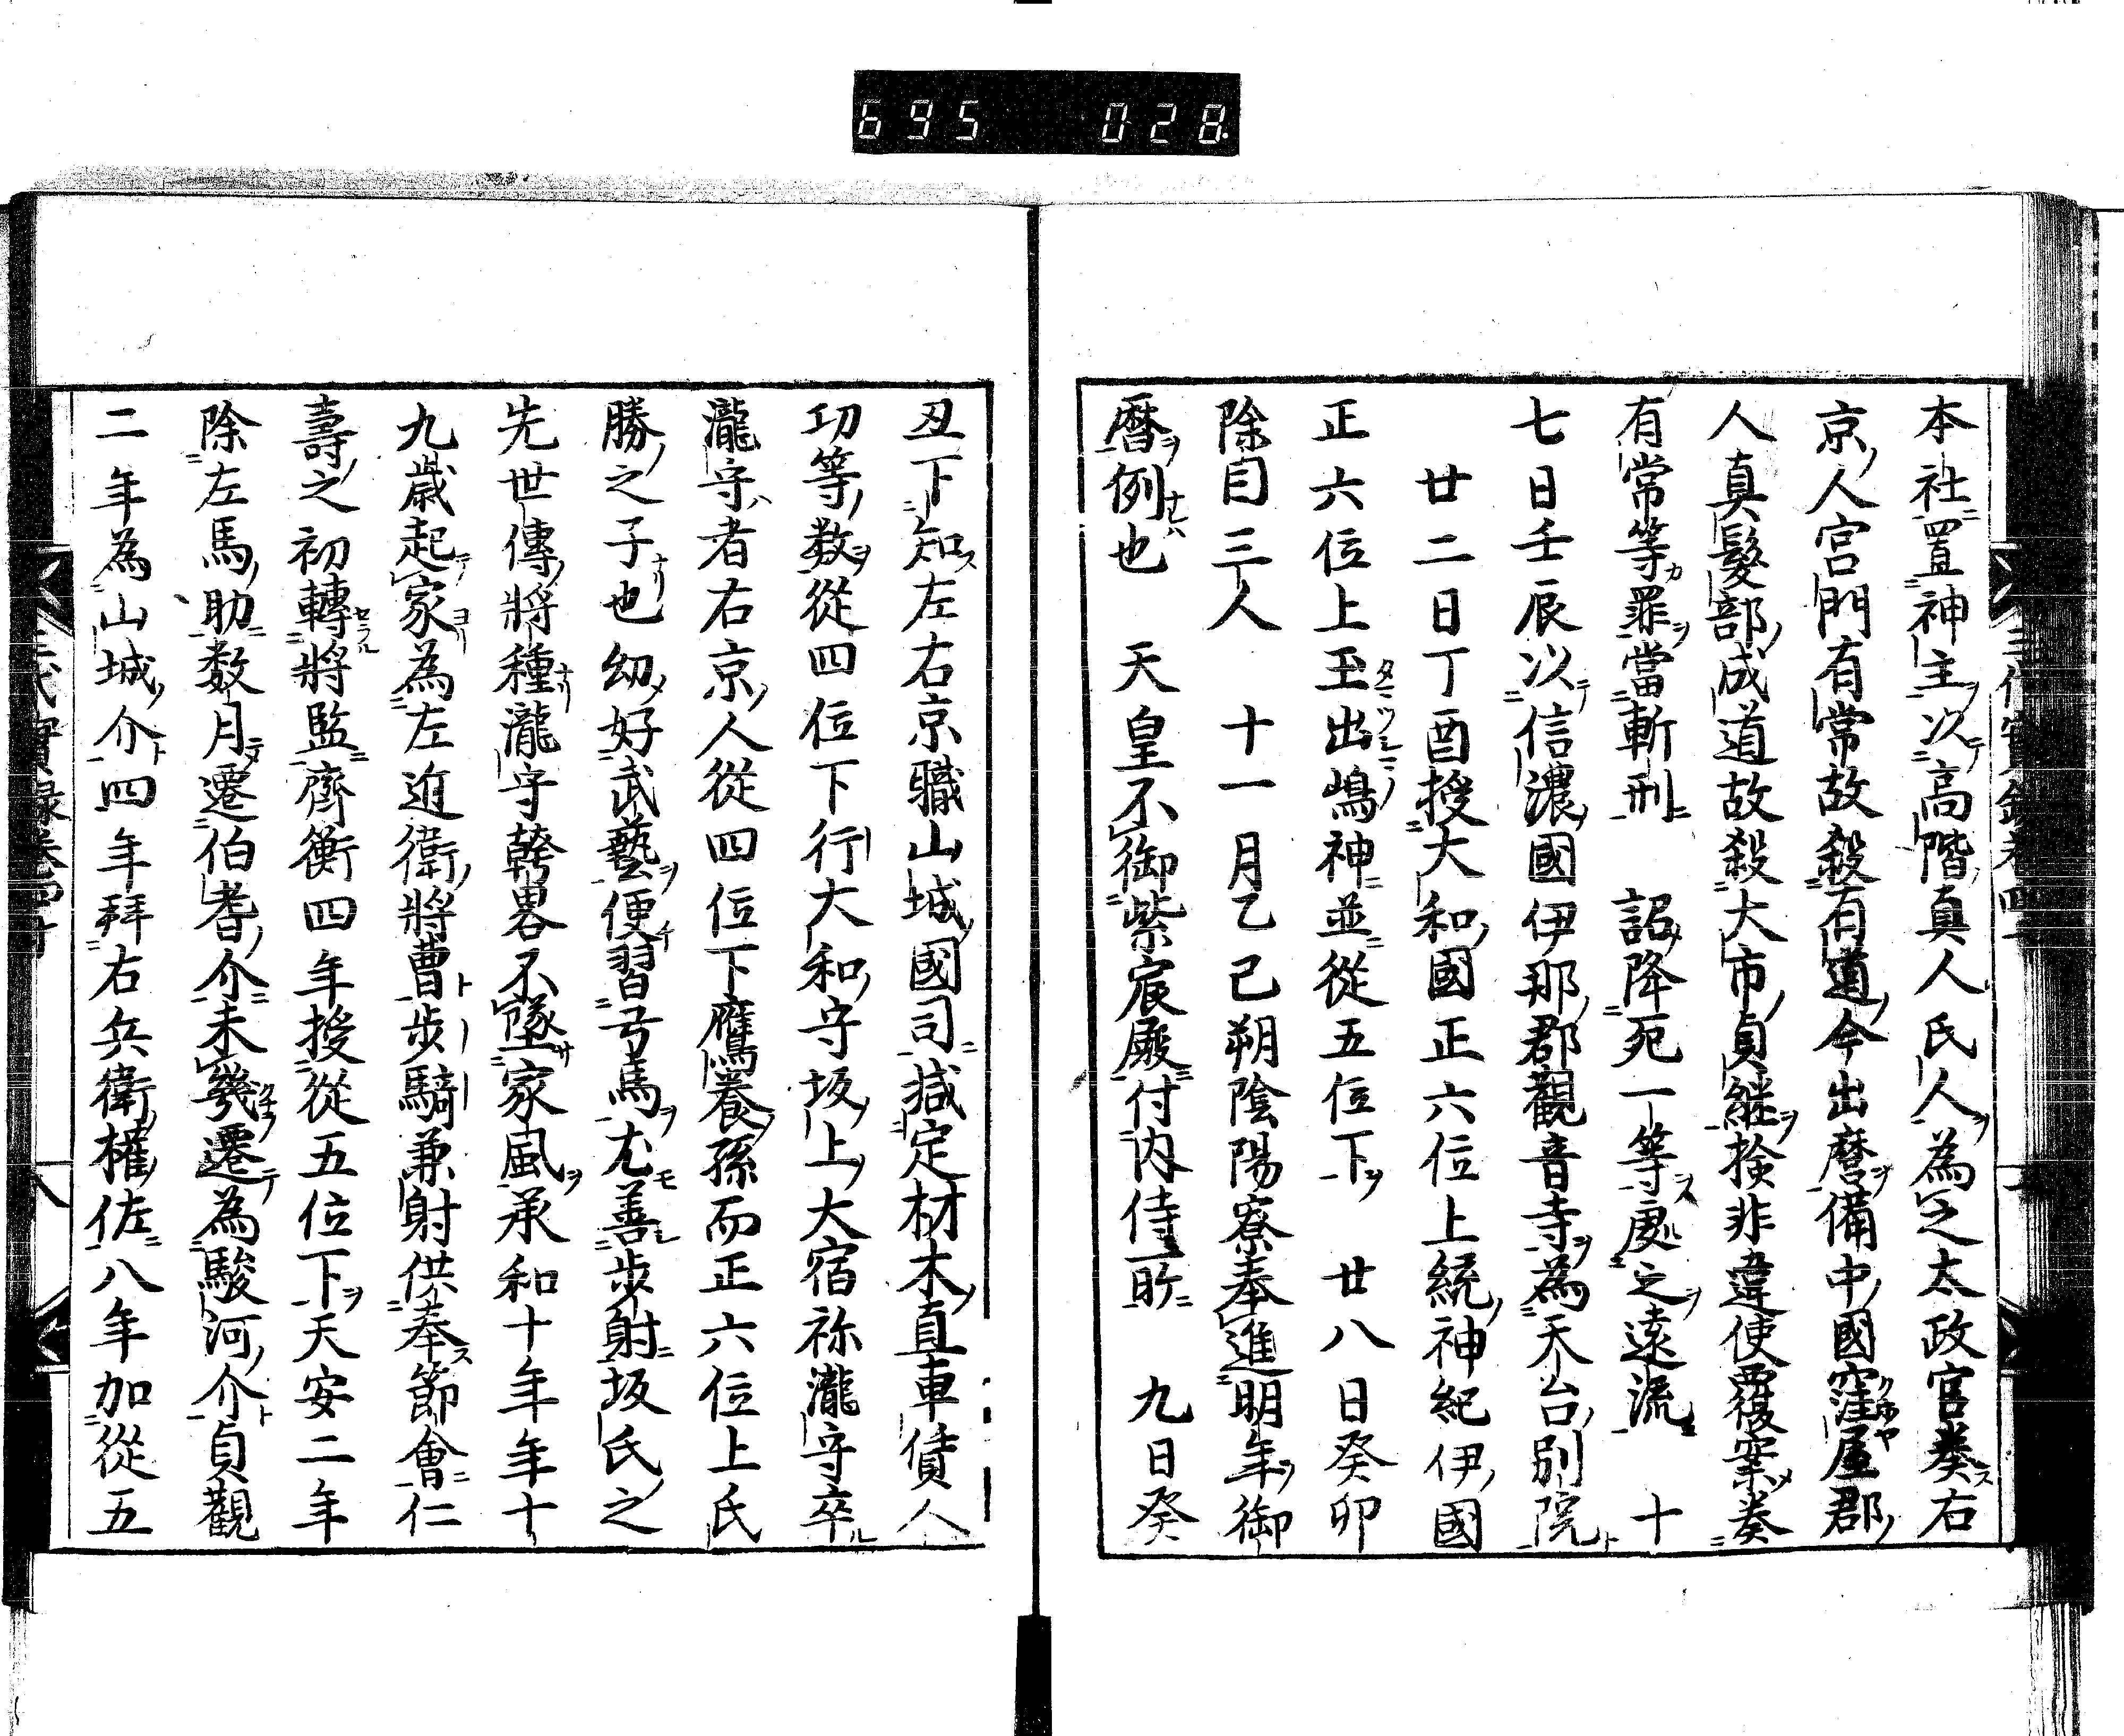 695 028
本社置神主次高階真人氏人為之太政官奏右
京人宮門有常故殺有道今出麿備中國窪屋郡
人真髮部成道故殺大市貞継撿非違使覆案奏
有常等罪當斬刑 詔降死一等處之遠流 十
七日壬辰以信濃國伊那郡觀音寺為天台別院
廿二日丁酉授大和國正六位上統神紀伊國
正六位上玉出嶋神並從五位下 廿八日癸卯
除目三人 十一月乙己朔陰陽寮奉進明年御
曆例也 天皇不御紫宸殿付内侍所 九日癸
丑下知左右京職山城國司㨔定材木直車賃人
功等數從四位下行大和守坂上大宿祢瀧守卒
瀧守者右京人從四位下鷹養孫而正六位上氏
勝之子也幼好武藝便習弓馬尤善步射坂氏之
先世傳將種瀧守幹畧不墜家風承和十年年十
九歲起家為左近衛將曹步騎兼射供奉節會仁
壽之初轉將監齊衡四年授從五位下天安二年
除左馬助数月遷伯耆介未幾遷為駿河介貞觀
二年為山城介四年拜右兵衛權佐八年加從五